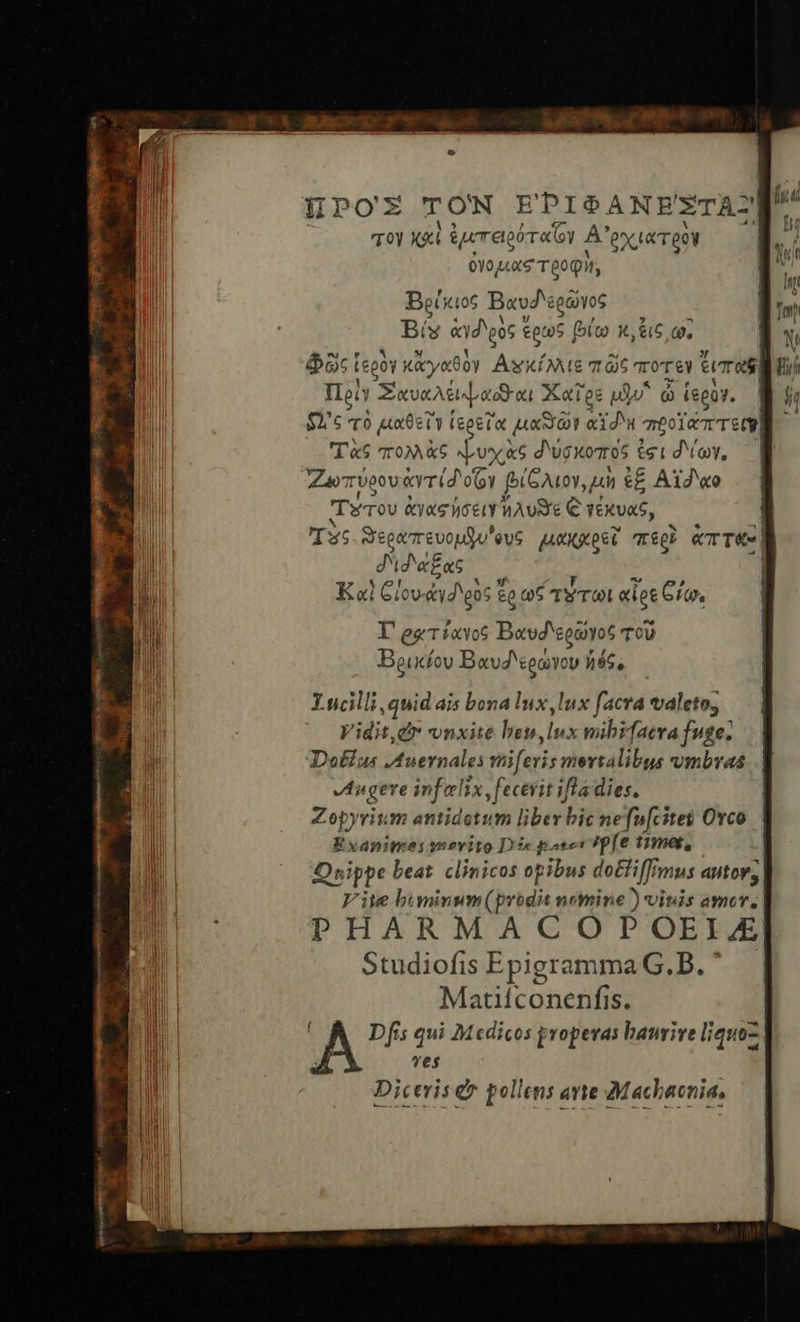 ΠΡΟ'Σ ΤΟ'Ν ΕΠΙΦΑΝΕ'ΣΤΑ-
τον καὶ ἐμπειρότατον Ἀρχιατρὸν
ὀνομαστροφὴ,
Βρίκιος Βαυδερῶνος
Βίȣ ἀνδρὸς ἔρως βίω κ, εἰς ω.
Φῶς ἱερὸν κἀγαθὸν Λȣκίλλιε πῶς ποτεν εἶπας
Πρὶν Σαυαλείψασθαι Χαῖρε μὲν ὦ ἱερὸν.
Ὣς τὸ μαθεῖν ἱερεῖα μαθὼν αἴδη προϊάπτειν
Τὰς πολλὰς ψυχὰς δύσκοπός ἐστι δίων,
Ζωπύρου ἀντίδοτον βίβλιον, μὴ ἐξ Ἀΐδαο
Τȣ́του ἀναστήσειν ἤλυθε νέκυας,
Τȣ̀ς θεραπευομένους μακαρεῖ περὶ ἅπτα-
διδάξας
Καὶ βίου ἀνδρὸς ἔρως τȣ́τωι αἶρε βίω.
Γρατίανος Βαυδερῶνος τοῦ
Βρικίου Βαυδερώνου ἡός.
Lucilli, quid ais bona lux, lux sacra valeto,
Vidit, & vnxite heu, lux mihi sacra fuge.
Doctus Auernales miseris mortalibus vmbras
Augere infœlix, fecerit ista dies.
Zopyrium antidotum liber hic ne suscitet Orco
Exanimes merito Dis pater ipse timet,
Quippe beat clinicos opibus doctissimus autor,
Vitæ hominum (prodit nomine) viuis amor.
PHARMACOPOEIÆ
Studiosis Epigramma G.B.
Matisconensis.
ADsis qui Medicos properas haurire liquo-
res
Diceris & pollens arte Machaonia,